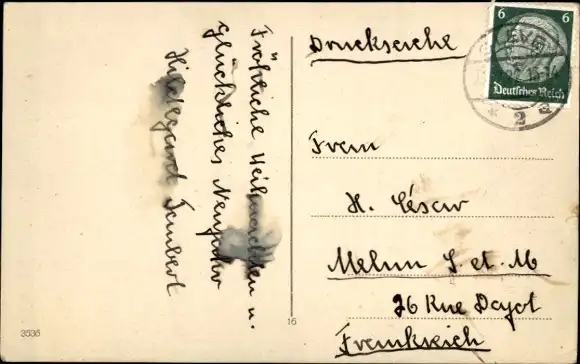 Fröhliche Weihnachten u.
glückliches Neujahr
Hildegard
Drucksache
6 6
Deutsches Reich
2
H. César
Melun S. et. M
26 Rue Dajot
Frankreich
3535
16